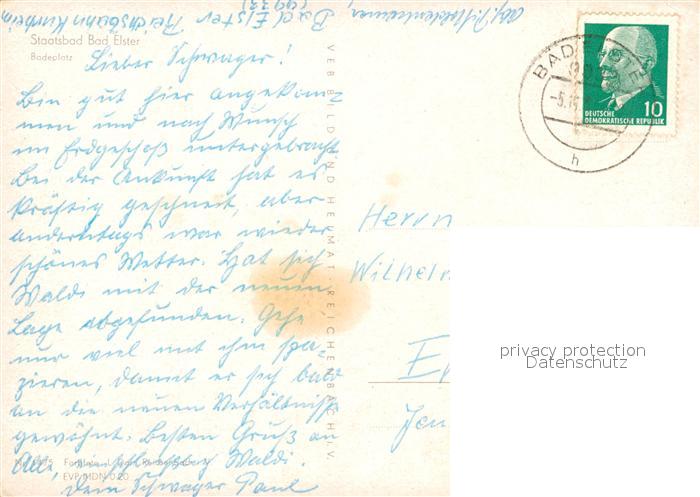 Bad Elster
(9933)
Staatsbad Bad Elster
Badeplatz
Lieber Schwager!
Bin gut hier angekom-
men und nach Wunsch
im Erdgeschoß untergebracht
Bei der Ankunft hat es
kräftig geschneit, aber
anderntags war wieder
schönes Wetter. Hat sich
Waldi mit der neuen
Lage abgefunden. Gehe
nur viel mit ihm spa-
zieren, damit er sich bald
an die neuen Verhältniss
gewöhnt. Besten Gruß an
Alle, Waldi.
Dein Schwager Paul
EVP MDN 0.20
VEB BILD UND HEIMAT · REICHENBACH i. V.
BAD
h
DEUTSCHE
DEMOKRATISCHE REPUBLIK
10
Herrn
Wilhelm
privacy protection
Datenschutz